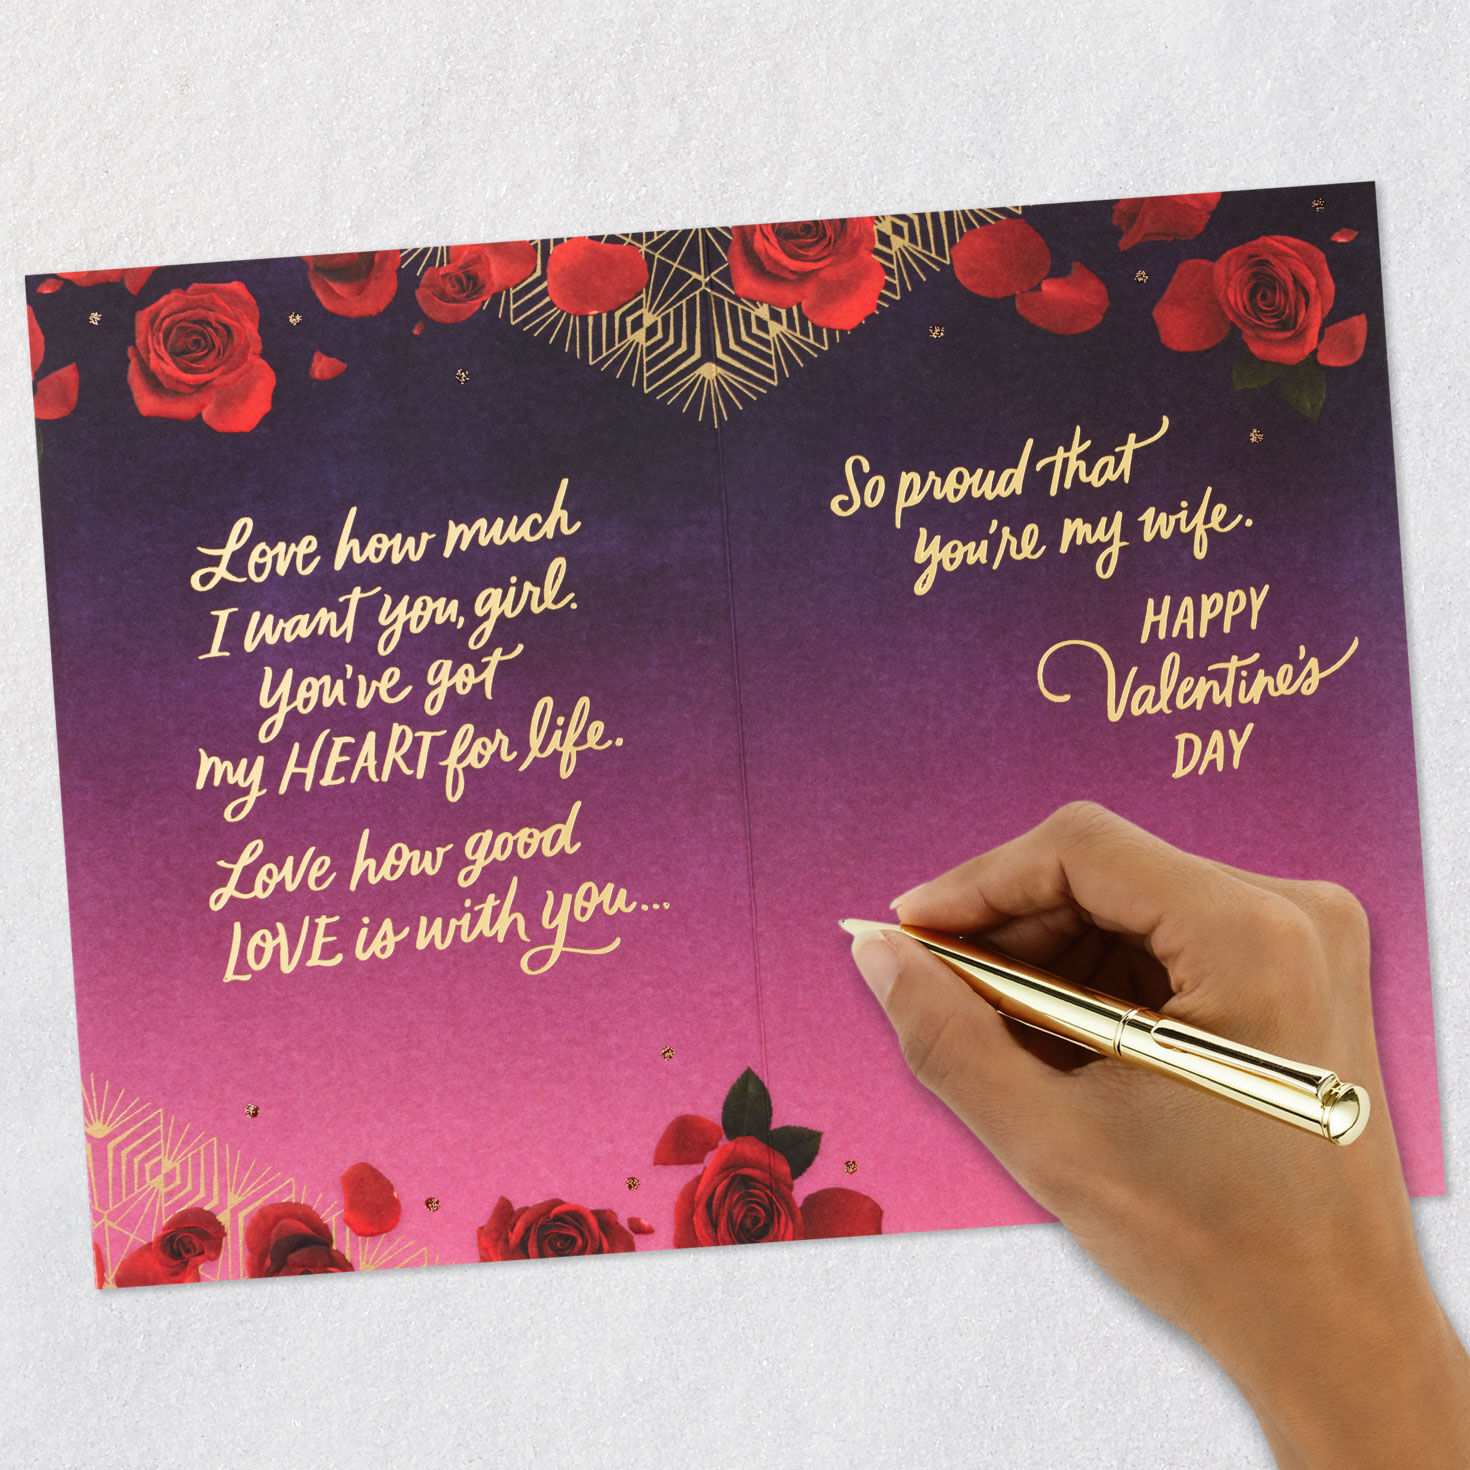 Love how much
I want you, girl.
You've got
my HEART for life.
Love how good
LOVE is with you...
So proud that
you're my wife.
HAPPY
Valentine's
DAY